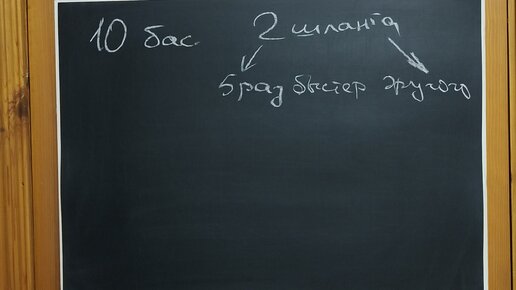 10 бас. 2 шланга
5 раз быстер другого